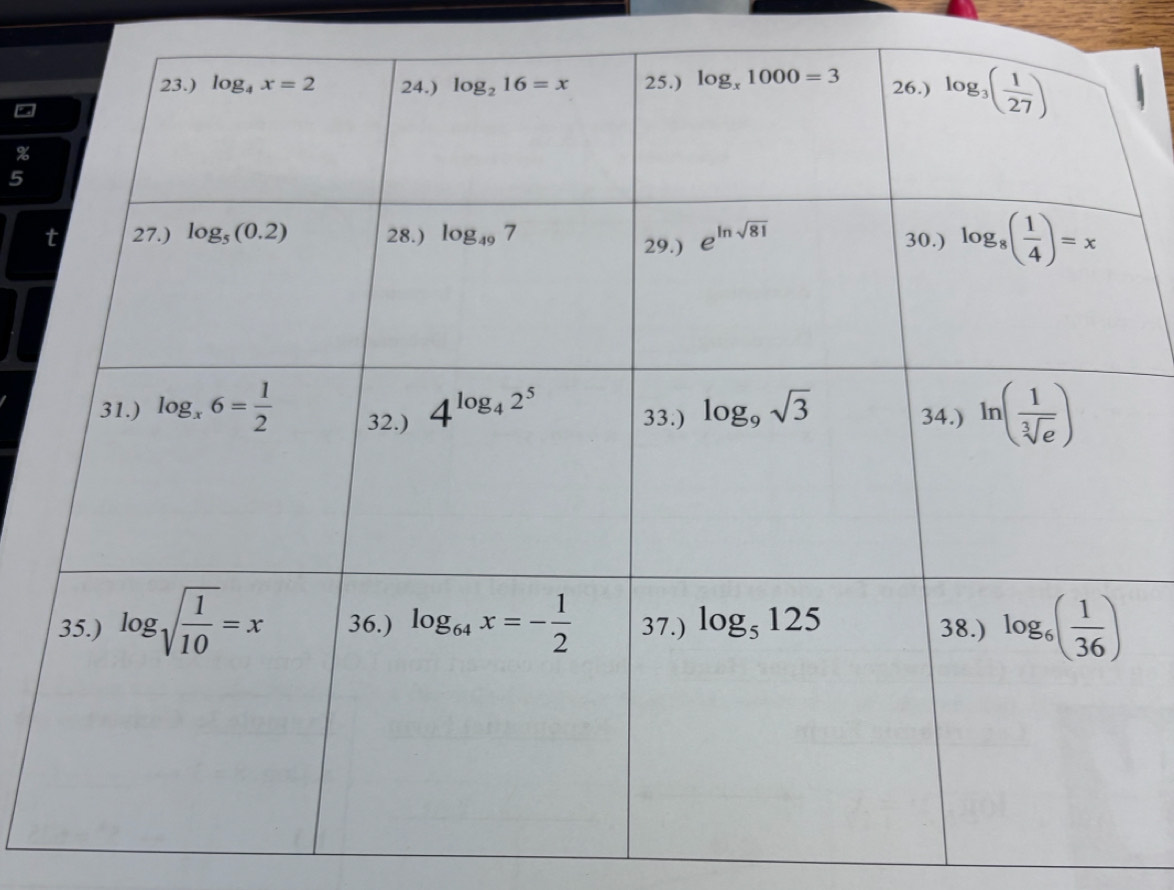 23.) log₄ x = 2
24.) log₂ 16 = x
25.) logₓ 1000 = 3
26.) log₃(1/27)
27.) log₅(0.2)
28.) log₄₉ 7
29.) e^(ln √81)
30.) log₈(1/4) = x
31.) logₓ 6 = 1/2
32.) 4^(log₄ 2⁵)
33.) log₉ √3
34.) ln(1/∛e)
35.) log √(1/10) = x
36.) log₆₄ x = -1/2
37.) log₅ 125
38.) log₆(1/36)
%
5
t